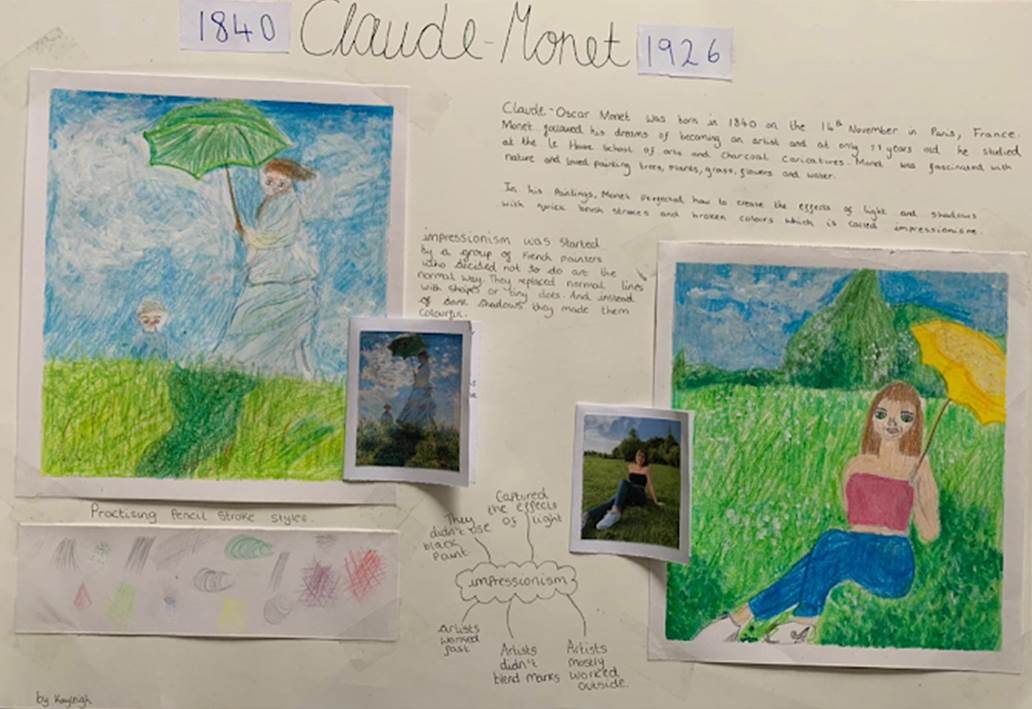 1840 Claude-Monet 1926
Claude-Oscar Monet was born in 1840 on the 14th November in Paris, France.
Monet followed his dreams of becoming an artist and at only 11 years old he studied
at the le Havre School of arts and Charcoal Caricatures. Monet was fascinated with
nature and loved painting trees, plants, grass, flowers and water.
In his Paintings, Monet perfected how to create the effects of light and shadows
with quick brush strokes and broken colours which is called impressionism.
impressionism was started
by a group of French painters
who decided not to do art the
normal way. They replaced normal lines
with shapes or tiny dots. And instead
of dark shadows they made them
colourful.
Practising Pencil Stroke Styles.
Captured
the effects
of light
They
didn't use
black
Paint
impressionism
Artists
worked
fast
Artists
didn't
blend marks
Artists
mostly
worked
outside.
by Kayleigh